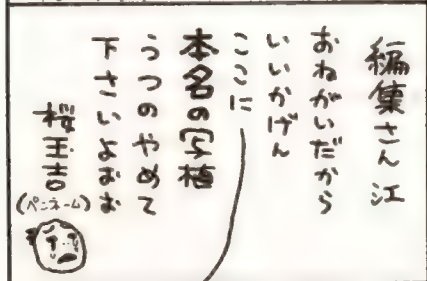 編集さん江
おねがいだから
いいかげん
ここに
本名の写植
うつのやめて
下さいよおお
桜玉吉
(ペンネーム)